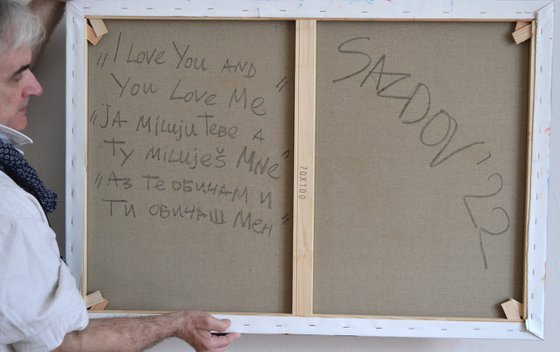 „I LOVE YOU AND
YOU LOVE ME”
„JA MILUJU TEBE A
TY MILUJEŠ MNE”
„АЗ ТЕ ОБИЧАМ И
ТИ ОБИЧАШ МЕН”
70X100
SAZDOV '22